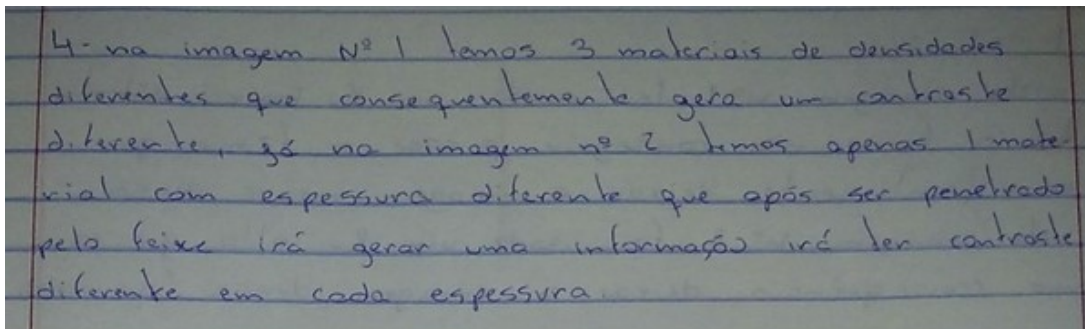 4- na imagem Nº 1 temos 3 materiais de densidades
diferentes que consequentemente gera um contraste
diferente, já na imagem nº 2 temos apenas 1 mate-
rial com espessura diferente que após ser penetrado
pelo feixe irá gerar uma informação irá ter contraste
diferente em cada espessura.